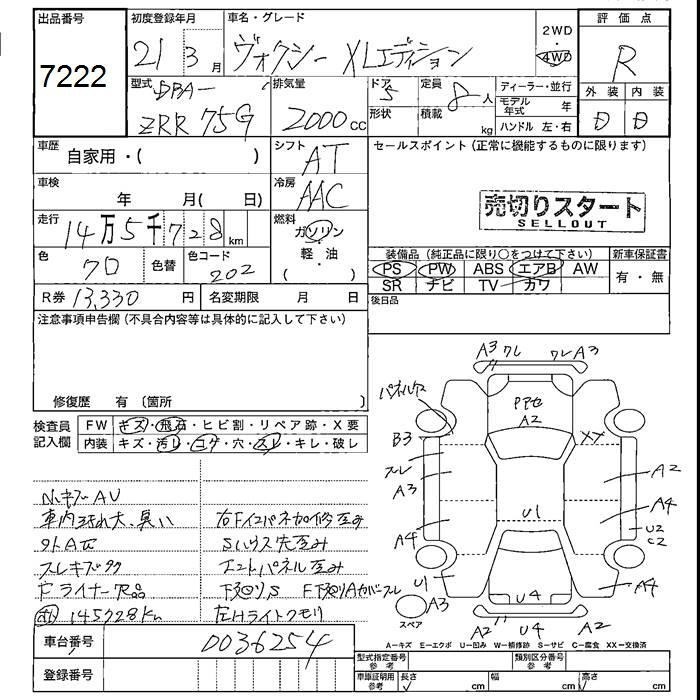 出品番号
7222
初度登録年月
21 3 月
車名・グレード
ヴォクシー XLエディション
2WD
・
4WD
評価点
R
外装 内装
D D
型式
DBA-
ZRR 75G
排気量
2000 cc
ドア
5
形状
定員
8 人
積載
kg
ディーラー・並行
モデル年式 年
ハンドル 左・右
車歴
自家用・( )
シフト
AT
車検
年 月( 日)
冷房
AAC
走行
14万5千728 km
燃料
ガソリン
・
軽・油
( )
色
70
色替
色コード
202
R券 13,330 円
名変期限 月 日
セールスポイント(正常に機能するものに限ります)
売切りスタート
SELLOUT
装備品(純正品に限り○をつけて下さい)
PS PW ABS エアB AW
SR ナビ TV カワ
新車保証書
有・無
後日品
注意事項申告欄(不具合内容等は具体的に記入して下さい)
修復歴 有〔箇所 〕
検査員記入欄
FW キズ・飛石・ヒビ割・リペア跡・X要
内装 キズ・汚レ・コゲ・穴・スレ・キレ・破レ
車内汚れ大、臭い
外A
スレキズ
Fライナー欠品
145728Km
右Fインパネ加修歪み
Sハウス先歪み
エンドパネル歪み
下廻りS
F下廻りAカバースレ
左Hライトクモリ
A3 ワレ
ワレ A3
A2
B3
XX
スレ
A3
A2
A4
U1
A4
U2
C2
U1
A4
A3
スペア
U4
A2
U4
A2
A=キズ E=エクボ U=凹み W=補修跡 S=サビ C=腐食 XX=交換済
車台番号
0036254
登録番号
型式指定番号
参考
類別区分番号
参考
車庫証明用
参考
長さ
cm
幅
cm
高さ
cm